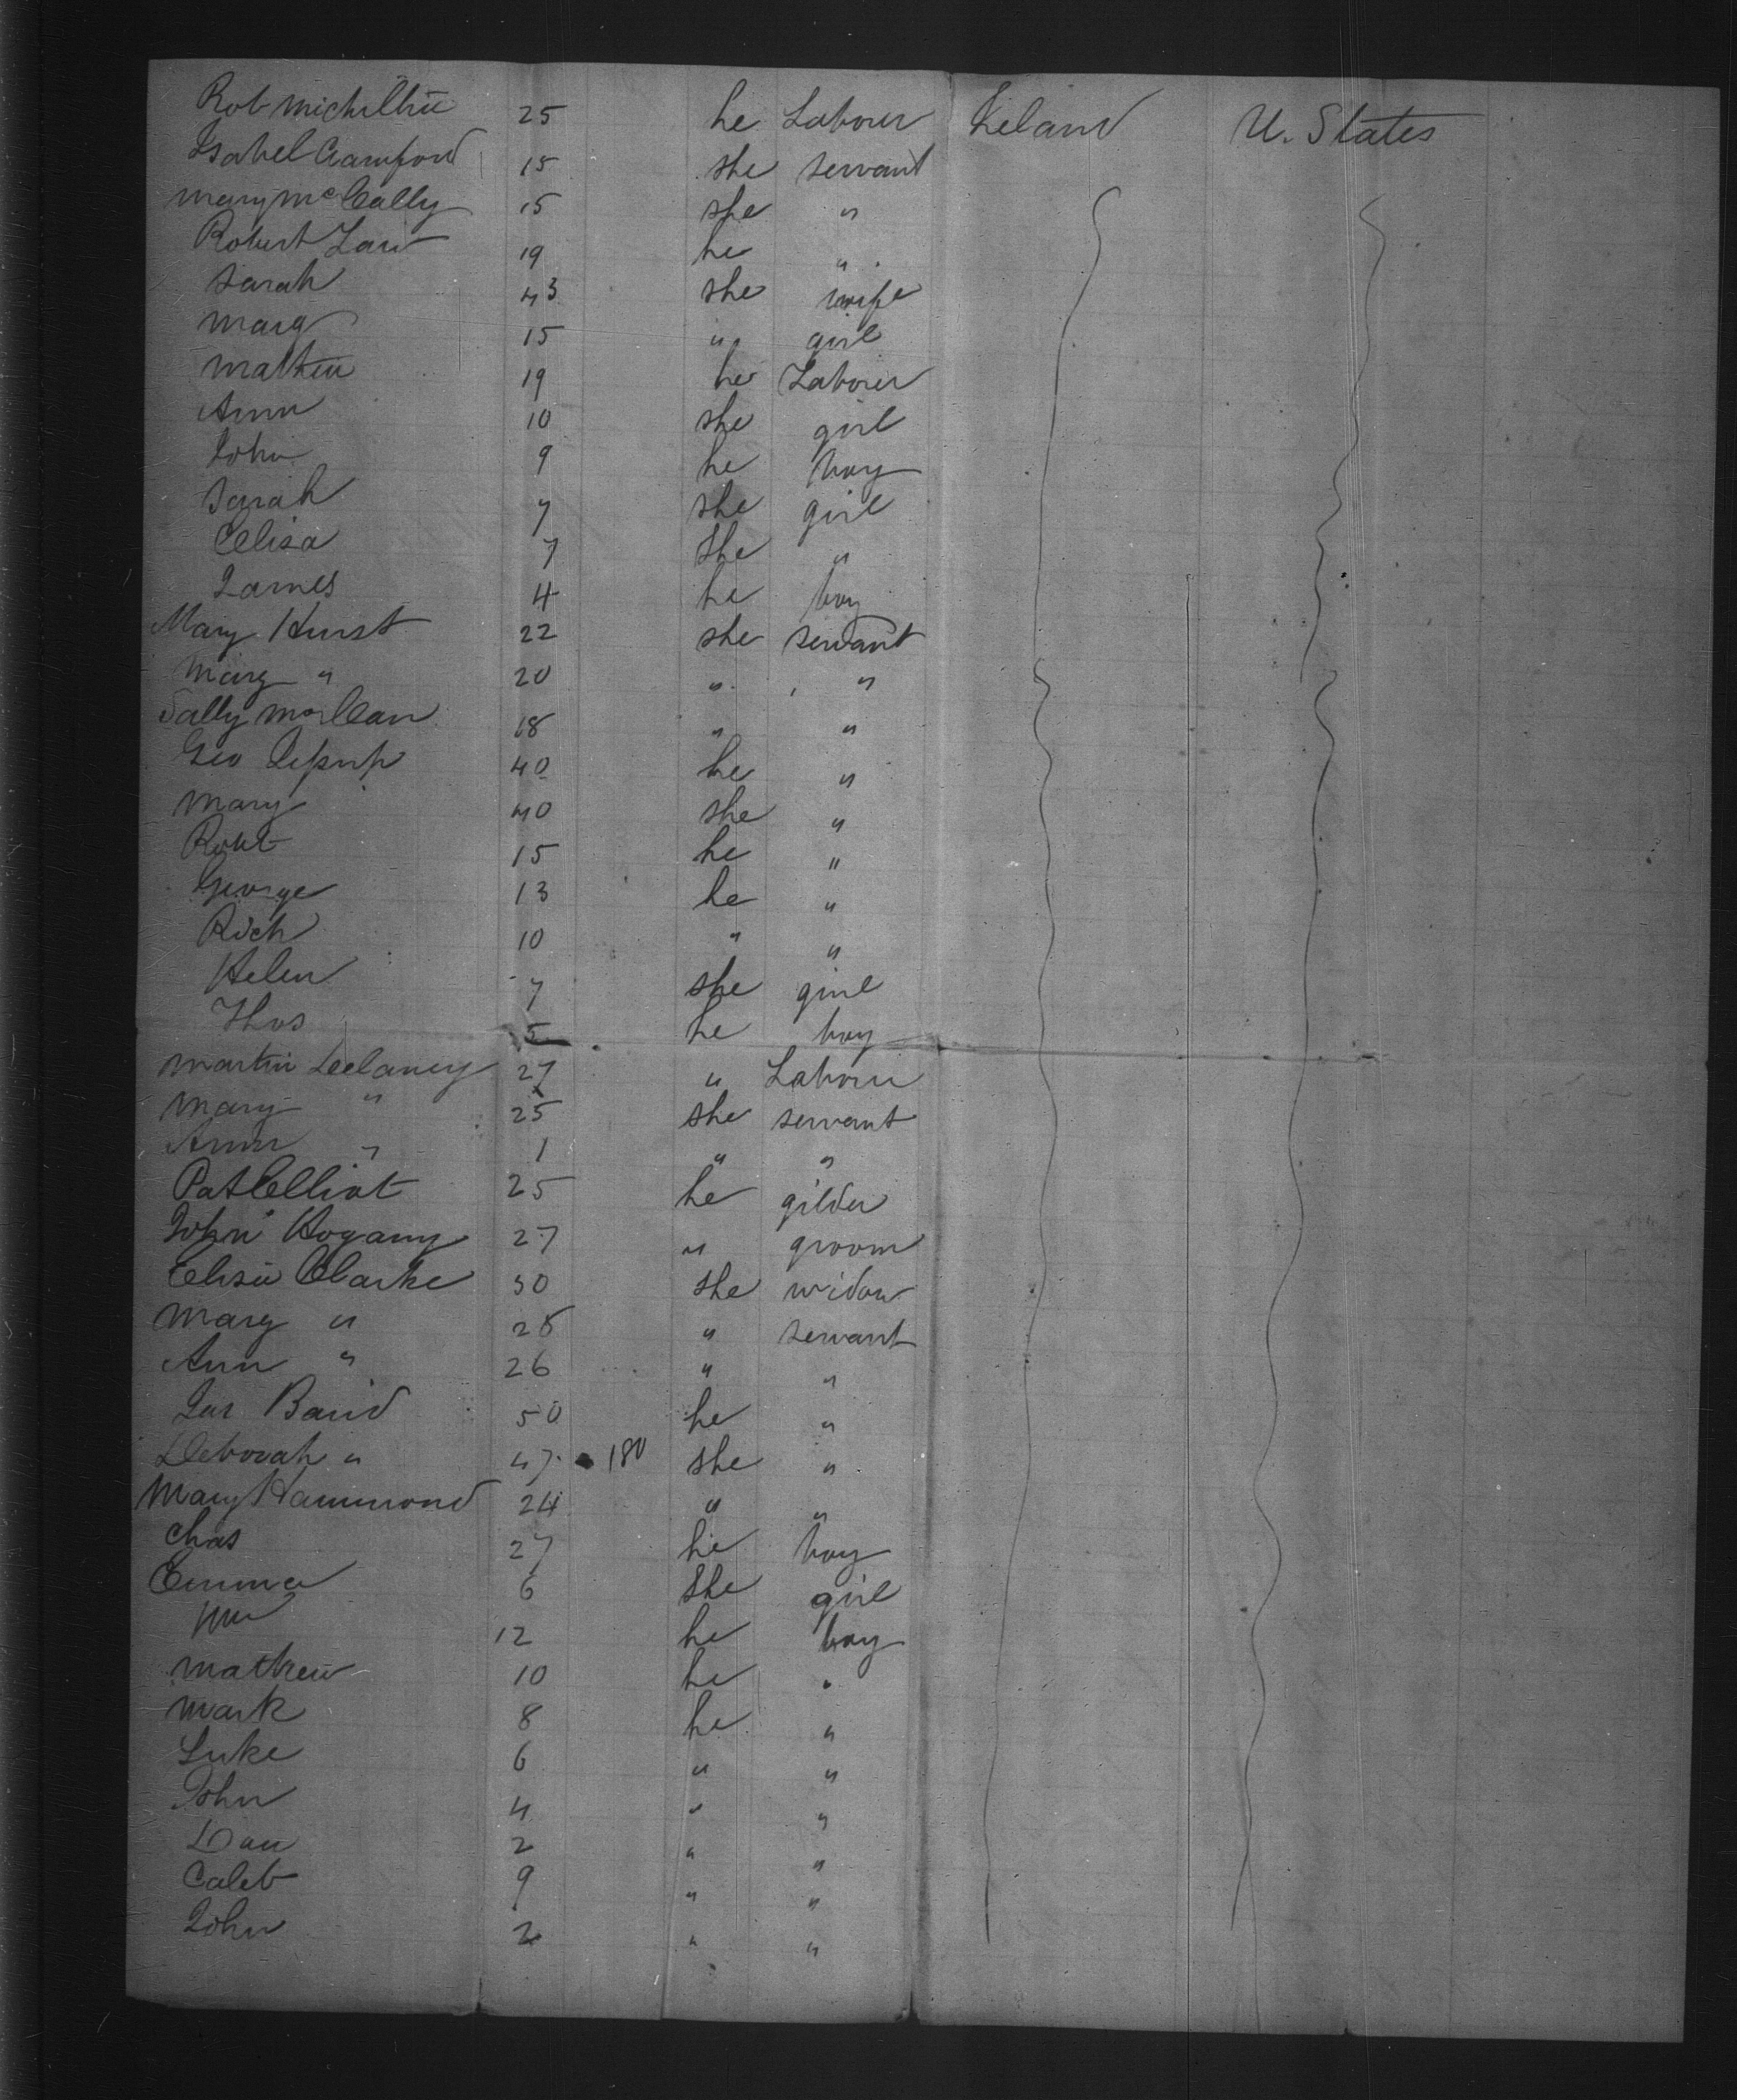 Rob Michillin 25 he Labourer Ireland U. States
Isabel Crawford 15 she servant
Mary McCally 15 she "
Robert Law 19 he "
Sarah 43 she wife
Marg 15 " girl
Mathew 19 he Labourer
Ann 10 she girl
John 9 he boy
Sarah 7 she girl
Elisa 7 she "
James 4 he boy
Mary Hurst 22 she servant
Marg " 20 " "
Sally McClean 18 " "
Geo 40 he "
Mary 40 she "
Robt 15 he "
George 13 he "
Rich 10 " "
Helen 7 she girl
Thos 5 he boy
Martin Delaney 27 " Labourer
Mary " 25 she servant
Ann " 1 " "
Pat Elliot 25 he gilder
John Hogany 27 " groom
Elisa Clarke 50 she widow
Marg " 28 " servant
Ann " 26 " "
Jas Baird 50 he "
Deborah " 47 180 she "
Mary Hammond 24 " "
Chas 27 he boy
Emma 6 she girl
Wm 12 he boy
Mathew 10 he "
Mark 8 he "
Luke 6 " "
John 4 " "
Dan 2 " "
Caleb 9 " "
John 2 " "